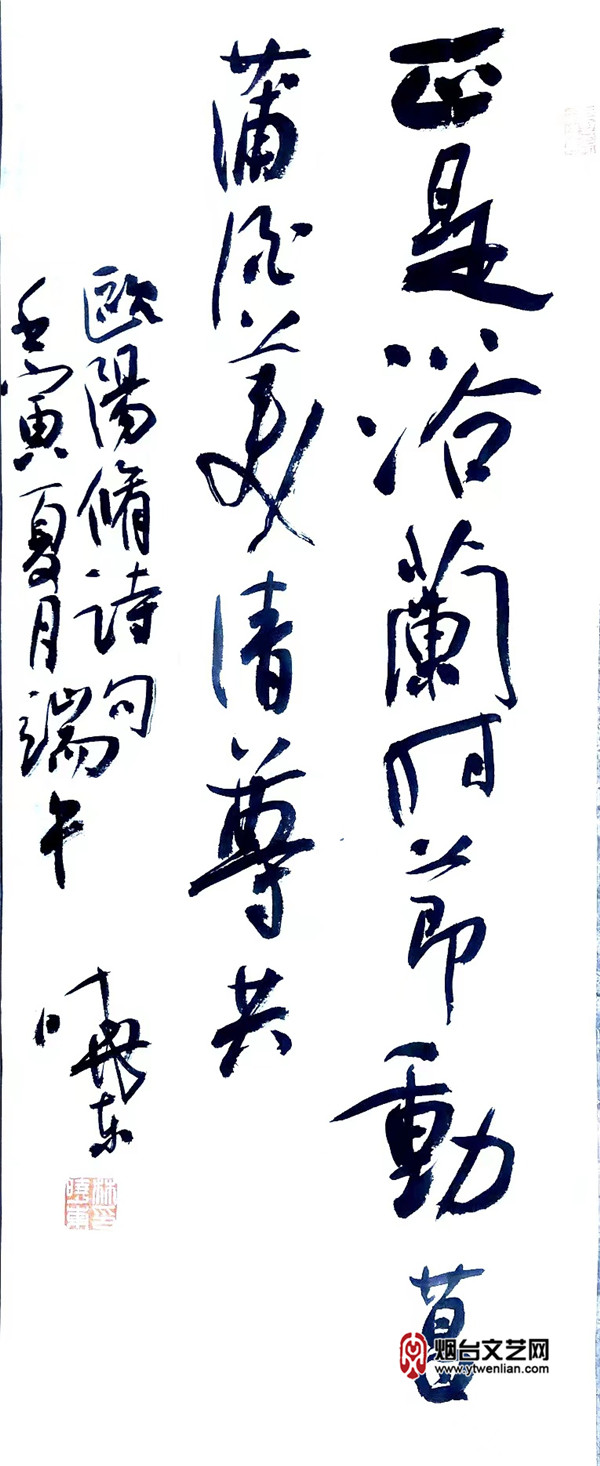 正是浴蘭时節動菖
蒲酒美清尊共
歐陽脩詩句
壬寅夏月端午
曉东
林印曉東
烟台文艺网
www.ytwenlian.com